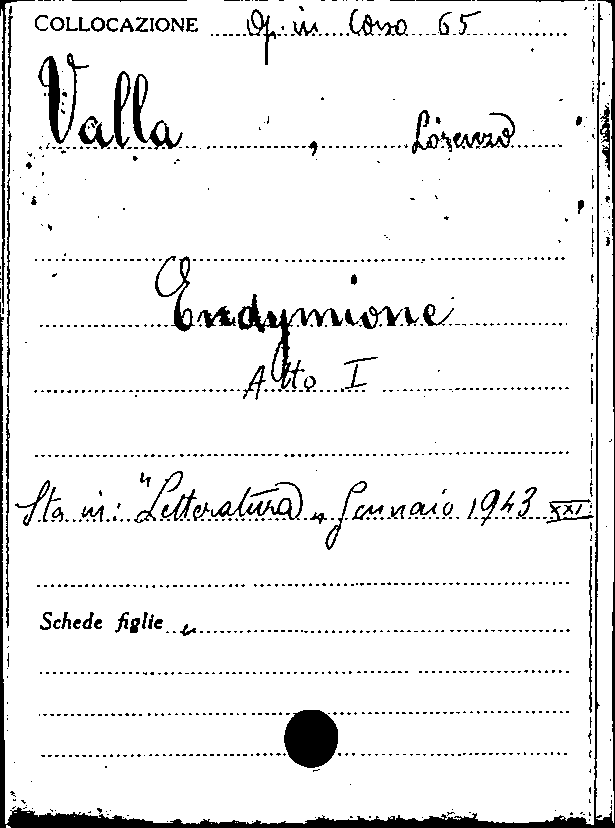 COLLOCAZIONE Op. in Corso 65
Valla , Lorenzo
Endymione
Atto I
Sta in: "Letteratura" Gennaio 1943 XXI
Schede figlie "